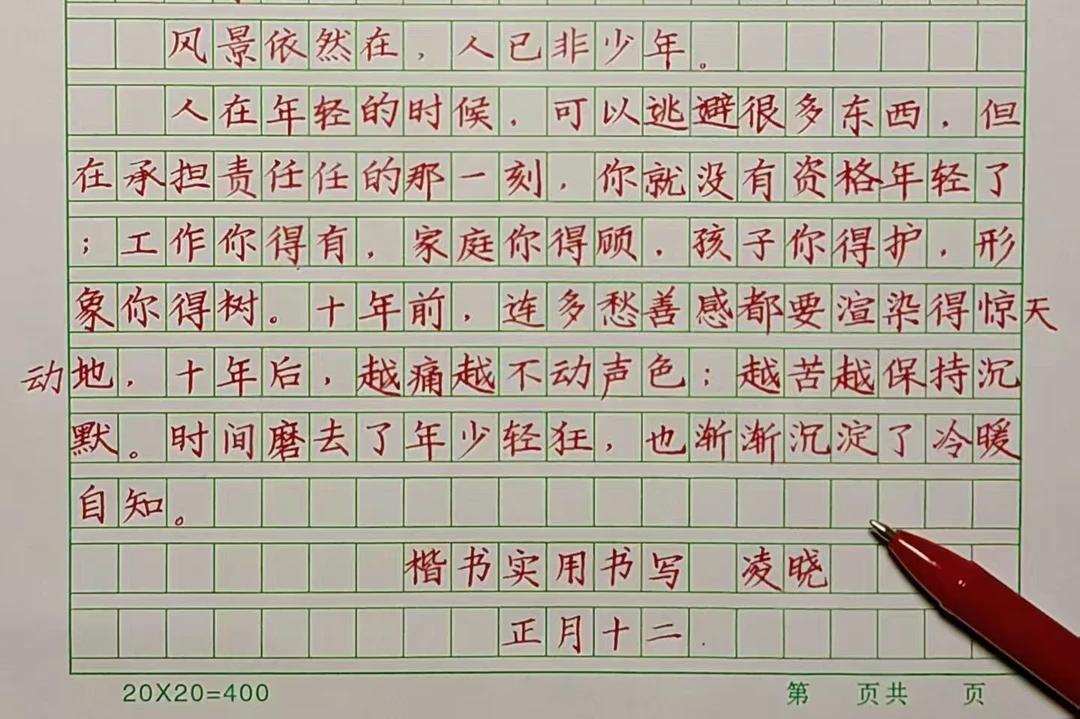 风景依然在，人已非少年。
人在年轻的时候，可以逃避很多东西，但
在承担责任任的那一刻，你就没有资格年轻了
；工作你得有，家庭你得顾，孩子你得护，形
象你得树。十年前，连多愁善感都要渲染得惊天
动地，十年后，越痛越不动声色；越苦越保持沉
默。时间磨去了年少轻狂，也渐渐沉淀了冷暖
自知。
楷书实用书写 凌晓
正月十二
20X20=400 第 页共 页